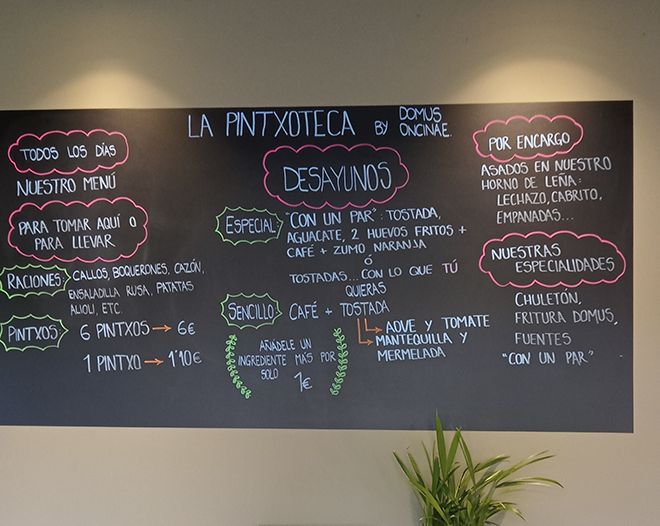 LA PINTXOTECA BY DOMUS ONCINAE.
TODOS LOS DÍAS
NUESTRO MENÚ
PARA TOMAR AQUÍ O
PARA LLEVAR
RACIONES
CALLOS, BOQUERONES, CAZÓN,
ENSALADILLA RUSA, PATATAS
ALIOLI, ETC.
PINTXOS
6 PINTXOS → 6€
1 PINTXO → 1'10€
DESAYUNOS
ESPECIAL
"CON UN PAR": TOSTADA,
AGUACATE, 2 HUEVOS FRITOS +
CAFÉ + ZUMO NARANJA
Ó
TOSTADAS... CON LO QUE TÚ
QUIERAS
SENCILLO
CAFÉ + TOSTADA
→ AOVE Y TOMATE
→ MANTEQUILLA Y
MERMELADA
AÑÁDELE UN
INGREDIENTE MÁS POR
SOLO
1€
POR ENCARGO
ASADOS EN NUESTRO
HORNO DE LEÑA:
LECHAZO, CABRITO,
EMPANADAS...
NUESTRAS
ESPECIALIDADES
CHULETÓN,
FRITURA DOMUS,
FUENTES
"CON UN PAR"